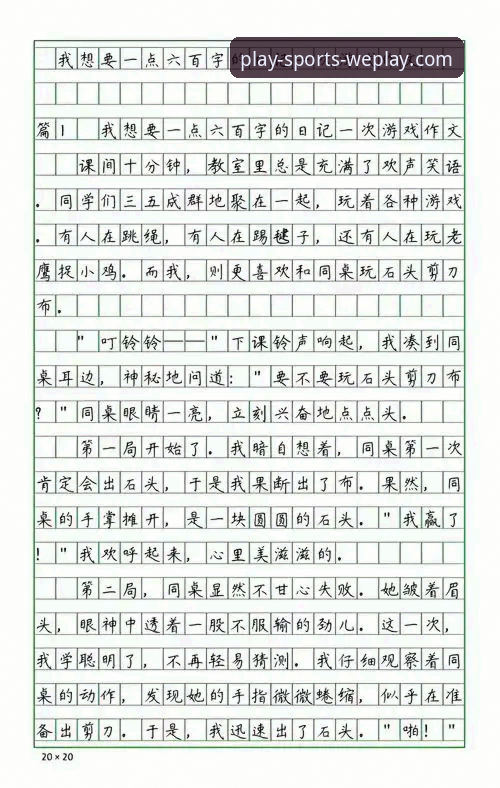 我想要一点六百字
play-sports-weplay.com
篇1 我想要一点六百字的日记一次游戏作文
课间十分钟，教室里总是充满了欢声笑语
。同学们三五成群地聚在一起，玩着各种游戏
。有人在跳绳，有人在踢毽子，还有人在玩老
鹰捉小鸡。而我，则更喜欢和同桌玩石头剪刀
布。
"叮铃铃——"下课铃声响起，我凑到同
桌耳边，神秘地问道："要不要玩石头剪刀布
？"同桌眼睛一亮，立刻兴奋地点点头。
第一局开始了。我暗自想着，同桌第一次
肯定会出石头，于是我果断出了布。果然，同
桌的手掌摊开，是一块圆圆的石头。"我赢了
！"我欢呼起来，心里美滋滋的。
第二局，同桌显然不甘心失败。她皱着眉
头，眼神中透着一股不服输的劲儿。这一次，
我学聪明了，不再轻易猜测。我仔细观察着同
桌的动作，发现她的手指微微蜷缩，似乎在准
备出剪刀。于是，我迅速出了石头。"啪！"
20×20